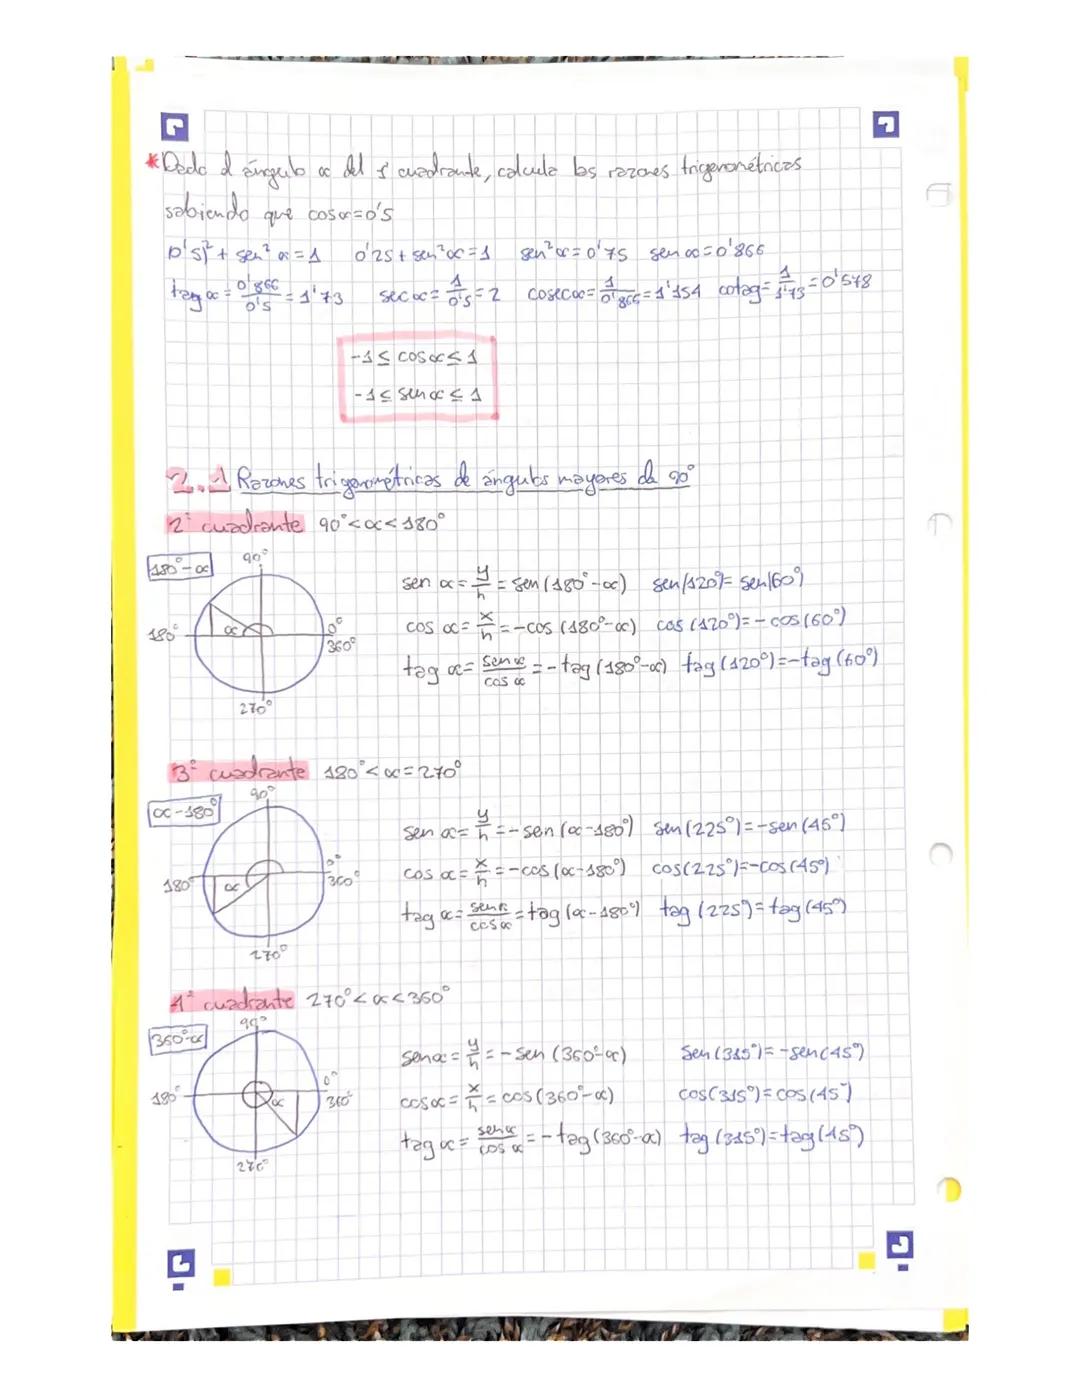 *Dado el ángulo α del 1º cuadrante, calcula las razones trigonométricas
sabiendo que cosα=0'5
(0'5)² + sen² α = 1 0'25 + sen²α = 1 sen²α = 0'75 sen α = 0'866
tag α = 0'866/0'5 = 1'73 sec α = 1/0'5 = 2 cosec α = 1/0'866 = 1'154 cotag = 1/1'73 = 0'578
-1 ≤ cos α ≤ 1
-1 ≤ sen α ≤ 1
2.1 Razones trigonométricas de ángulos mayores de 90°
2º cuadrante 90° < α < 180°
180°-α
90°
180°
α
0°
360°
270°
sen α = y/h = sen (180°-α) sen(120°) = sen(60°)
cos α = x/h = -cos (180°-α) cos (120°) = -cos (60°)
tag α = sen α/cos α = -tag (180°-α) tag (120°) = -tag (60°)
3º cuadrante 180° < α = 270°
α-180°
90°
180°
α
0°
360°
270°
sen α = y/h = -sen (α-180°) sen (225°) = -sen (45°)
cos α = x/h = -cos (α-180°) cos(225°) = -cos (45°)
tag α = sen α/cos α = tag (α-180°) tag (225°) = tag (45°)
4º cuadrante 270° < α < 360°
360°-α
90°
180°
α
0°
360°
270°
sen α = y/h = -sen (360°-α) sen (315°) = -sen (45°)
cos α = x/h = cos (360°-α) cos (315°) = cos (45°)
tag α = sen α/cos α = -tag (360°-α) tag (315°) = tag (45°)